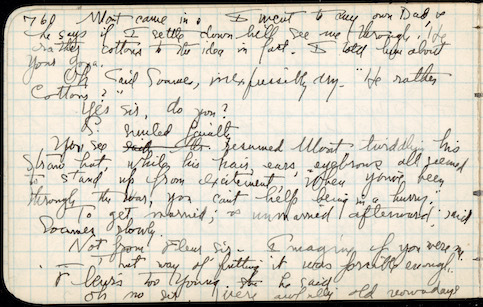 760 Mont came in. I went to my own Dad, &
he says if I settle down he'll see me through. He
rather cottons to the idea in fact. I told him about
your Goya.
Oh said Soames, inexpressibly dry. "He rather
cottons?"
Yes sir, do you?
S. smiled faintly
You see resumed Mont twiddling his
straw hat while his hair, ears, eyebrows all seemed
to stand up from excitement, When you've been
through the war, you can't help being in a hurry.
To get married; & unmarried afterward; said
Soames slowly.
Not from Fleur sir. Imagine if you were me
way of putting it was forcible enough.
Fleur's too young he said
Oh no sir very awfully old nowadays